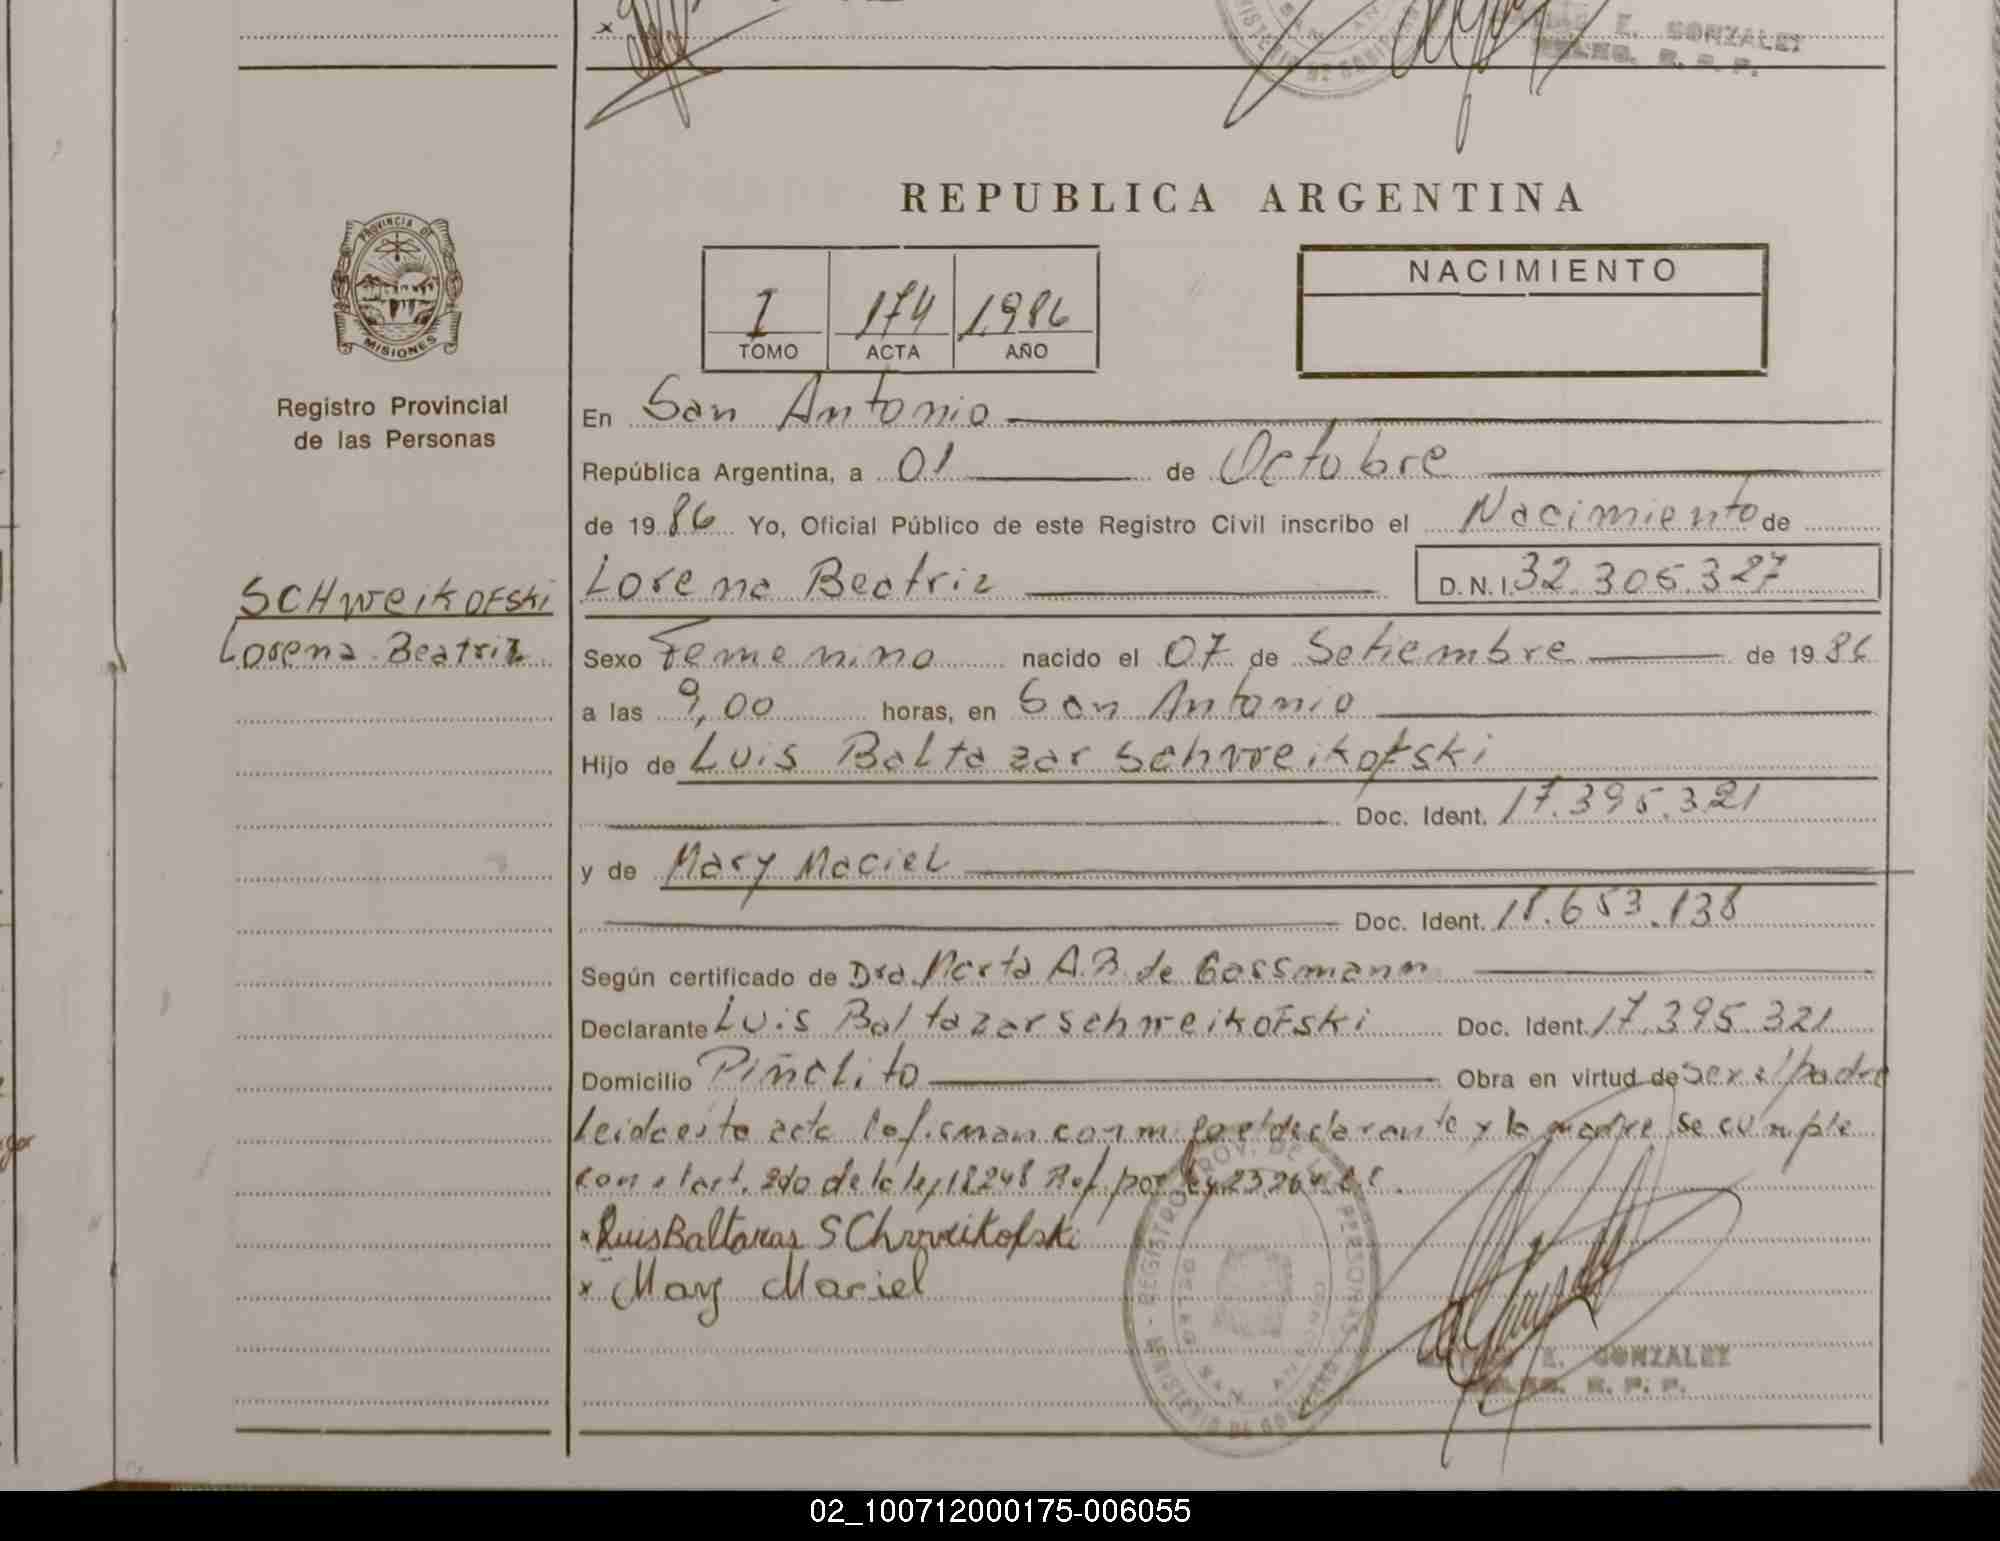 E. GONZALEZ
REPUBLICA ARGENTINA
PROVINCIA DE
MISIONES
Registro Provincial
de las Personas
NACIMIENTO
I 174 1986
TOMO ACTA AÑO
En San Antonio
República Argentina, a 01 de Octubre
de 1986 Yo, Oficial Público de este Registro Civil inscribo el Nacimiento de
Lorena Beatriz D.N.I. 32.305.327
SCHweikOFSki
Lorena Beatriz
Sexo Femenino nacido el 07 de Setiembre de 1986
a las 9,00 horas, en San Antonio
Hijo de Luis Baltazar Schweikofski
Doc. Ident. 17.395.321
y de Mary Maciel
Doc. Ident. 18.653.138
Según certificado de Dra. Marta A.B. de Gassmann
Declarante Luis Baltazar Schweikofski Doc. Ident. 17.395.321
Domicilio Piñalito Obra en virtud de ser el padre
Leida esta acta la firman conmigo el declarante y la madre se cumple
con el art. 2do de la ley 18248 Ref. por ley 23264.
x Luis Baltazar SChweikofski
x Mary Maciel
E. GONZALEZ
R. P. P.
02_100712000175-006055